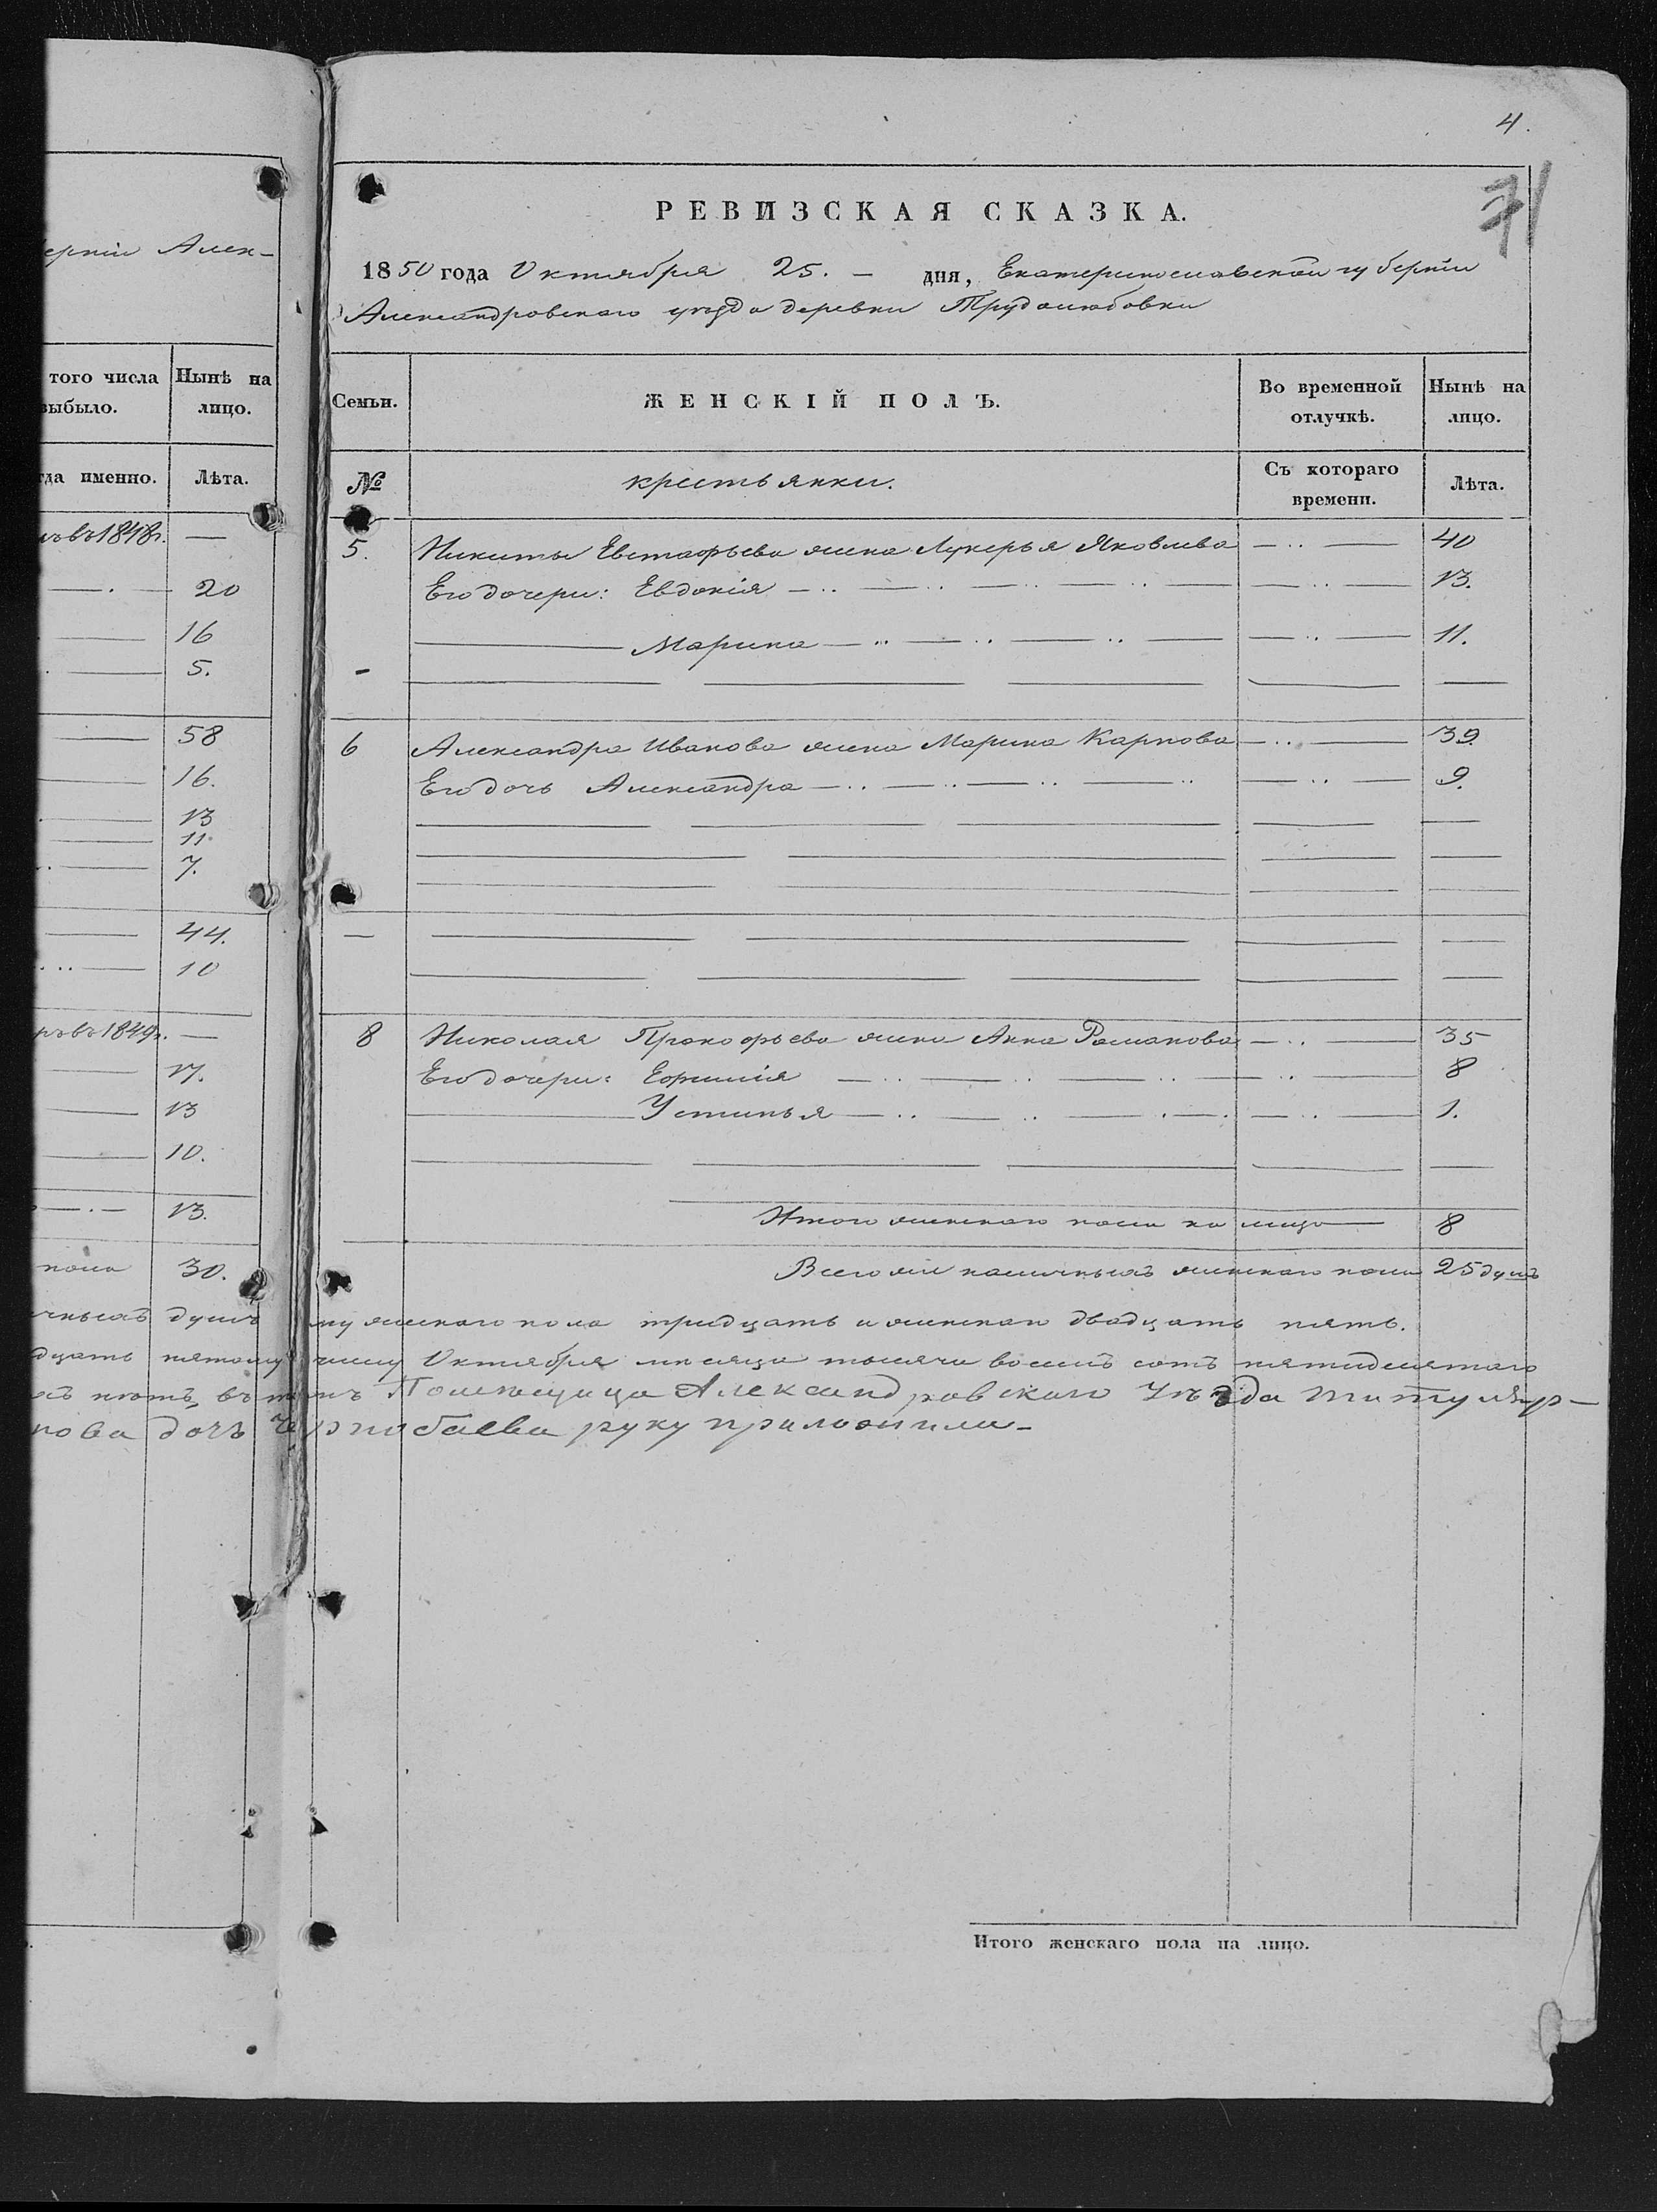 4.
71
ерніи Алек-
того числа выбыло. Нынѣ на лицо.
гда именно. Лѣта.
въ 1848 г. —
20
16
5.
58
16.
13
11.
7.
44.
10
въ 1849 г. —
17.
13
10.
13.
пола 30.
РЕВИЗСКАЯ СКАЗКА.
1850 года Октября 25. — дня, Екатеринославской губерніи
Александровскаго уезда деревни Трудолюбовки
Семьи. ЖЕНСКІЙ ПОЛЪ. Во временной отлучкѣ. Нынѣ на лицо.
№ крестьянки. Съ котораго времени. Лѣта.
5. Никиты Евстафьева жена Лукерья Яковлева 40
Его дочери: Евдокія 13.
Марина 11.
6 Александра Иванова жена Марина Карпова 39.
Его дочь Александра 9.
8 Николая Прокофьева жена Анна Романова 35
Его дочери: Ефимія 8
Устинья 1.
Итого женскаго пола на лицо 8
Всего же наличныхъ женскаго пола 25 душъ
душъ мужескаго пола тридцать и женскаго двадцать пять.
дцать пятому числу Октября месяца тысяча восемь сотъ пятидесятаго
нетъ, въ томъ Помѣщица Александровскаго Уѣзда титуляр-
нова дочь руку приложила-
Итого женскаго пола на лицо.